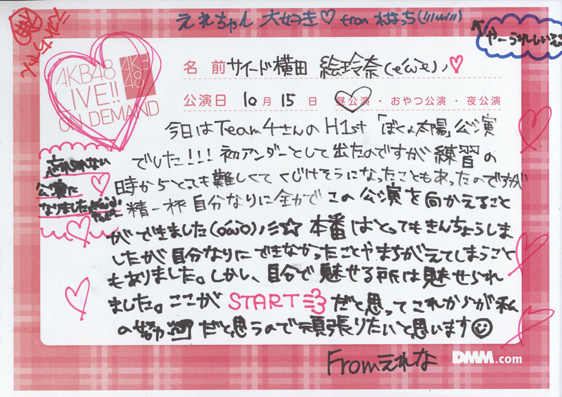 えれちゃん 大好き♡ from なっち(///ω///)
えれちゃん
やーうれしいぞ
AKB48
LIVE!!
ON DEMAND
AKB
48
名 前 サイード横田 絵玲奈(・ë・)♡
公演日 10月 15日 昼公演・おやつ公演・夜公演
今日はTeam4さんのH1st「僕の太陽」公演
でした!!!初アンダーとして出たのですが練習の
時からとても難しくてくじけそうになったこともあったのですが
精一杯自分なりに全力でこの公演を向かえること
ができました(oωo)ミ☆本番はとってもきんちょうしま
したが自分なりにできなかったことやまちがえてしまうこと
もありました。しかし、自分で魅せる所は魅せられ
ました。ここがSTARTだと思ってこれからが私
の努力だと思うので頑張りたいと思います☺
忘れられない
公演に
なりました
From えれな
DMM.com